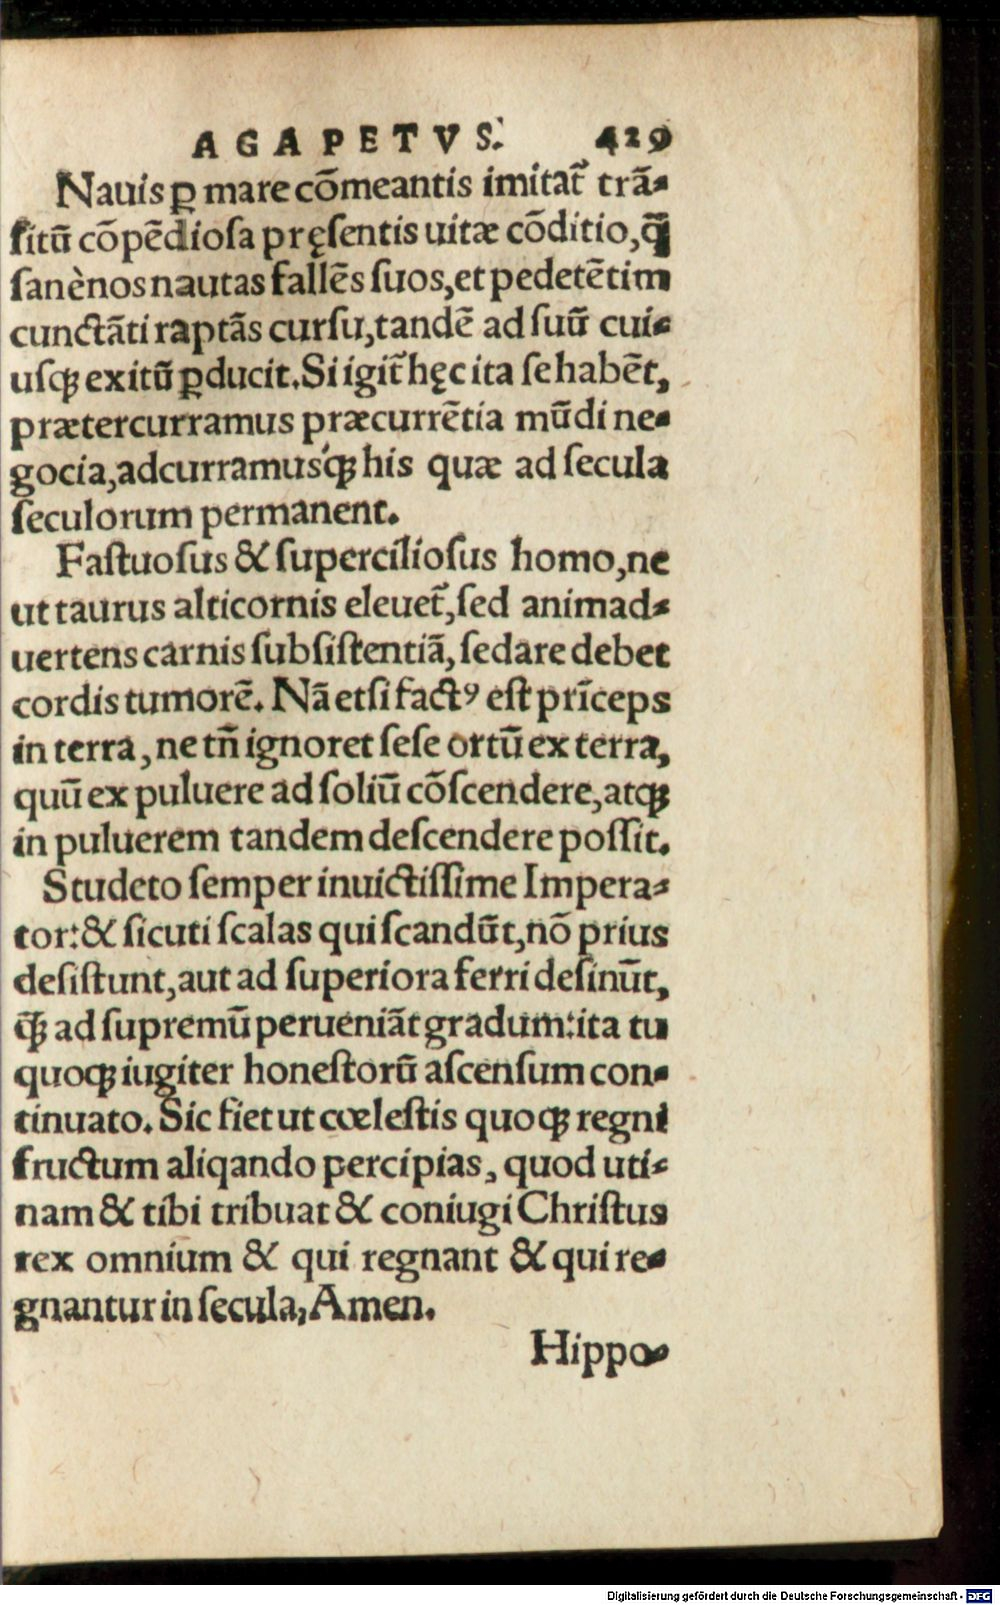 AGAPETVS. 429
Nauis ꝑ mare cõmeantis imitat᷑ trã-
ſitũ cõpẽdioſa pręſentis uitæ cõditio, q̃
ſanè nos nautas fallẽs ſuos, et pedetẽtim
cunctãti raptãs curſu, tandẽ ad ſuũ cui-
uſqꝫ exitũ ꝑducit. Si igit᷑ hęc ita ſe habẽt,
prætercurramus præcurrẽtia mũdi ne-
gocia, adcurramusqꝫ his quæ ad ſecula
ſeculorum permanent.
Faſtuoſus & ſupercilioſus homo, ne
ut taurus alticornis eleuet᷑, ſed animad-
uertens carnis ſubſiſtentiã, ſedare debet
cordis tumorẽ. Nã etſi factꝰ eſt prĩceps
in terra, ne tñ ignoret ſeſe ortũ ex terra,
quũ ex puluere ad ſoliũ cõſcendere, atqꝫ
in puluerem tandem deſcendere poſſit.
Studeto ſemper inuictiſſime Impera-
tor: & ſicuti ſcalas qui ſcandũt, nõ prius
deſiſtunt, aut ad ſuperiora ferri deſinũt,
q̃ꝫ ad ſupremũ perueniãt gradum: ita tu
quoqꝫ iugiter honeſtorũ aſcenſum con-
tinuato. Sic fiet ut cœleſtis quoqꝫ regni
fructum aliqando percipias, quod uti-
nam & tibi tribuat & coniugi Chriſtus
rex omnium & qui regnant & qui re-
gnantur in ſecula, Amen.
Hippo-
Digitalisierung gefördert durch die Deutsche Forschungsgemeinschaft - DFG